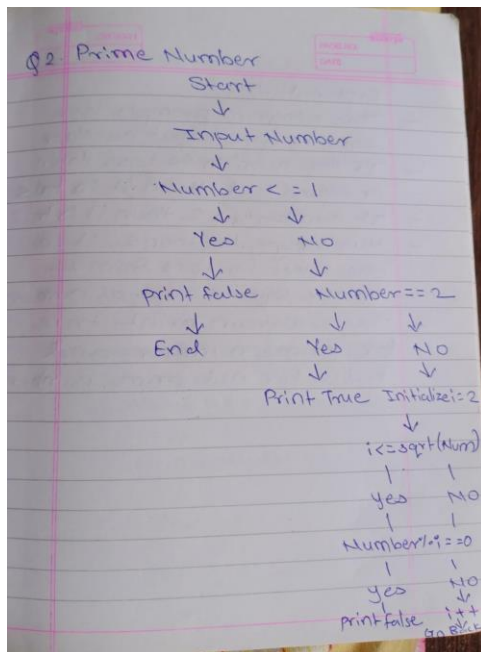 Q2. Prime Number
Start
Input Number
Number <= 1
Yes NO
print false Number == 2
End Yes NO
Print True Initialize i=2
i<=sqrt(Num)
yes NO
Number%i==0
yes NO
print false i++
Go Back